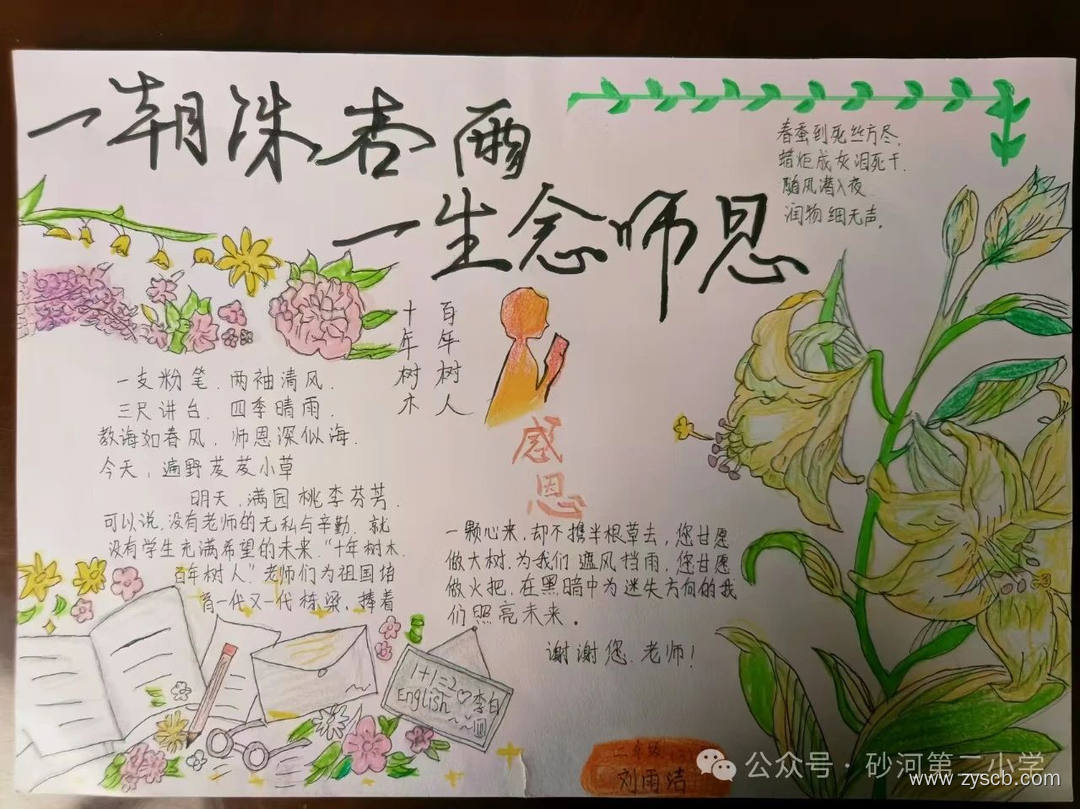 一朝沐杏雨
一生念师恩
春蚕到死丝方尽.
蜡炬成灰泪死干.
随风潜入夜
润物细无声.
百年树人
十年树木
一支粉笔.两袖清风.
三尺讲台.四季晴雨.
教海如春风.师恩深似海.
今天,遍野芨芨小草
明天,满园桃李芬芳.
可以说,没有老师的无私与辛勤.就
没有学生充满希望的未来."十年树木.
百年树人"老师们为祖国培
育一代又一代栋梁,捧着
感
恩
一颗心来,却不携半根草去,您甘愿
做大树.为我们遮风挡雨,您甘愿
做火把,在黑暗中为迷失方向的我
们照亮未来.
谢谢您.老师!
1+1=2
English
李白
刘雨洁
公众号·砂河第二小学
www.zyscb.com